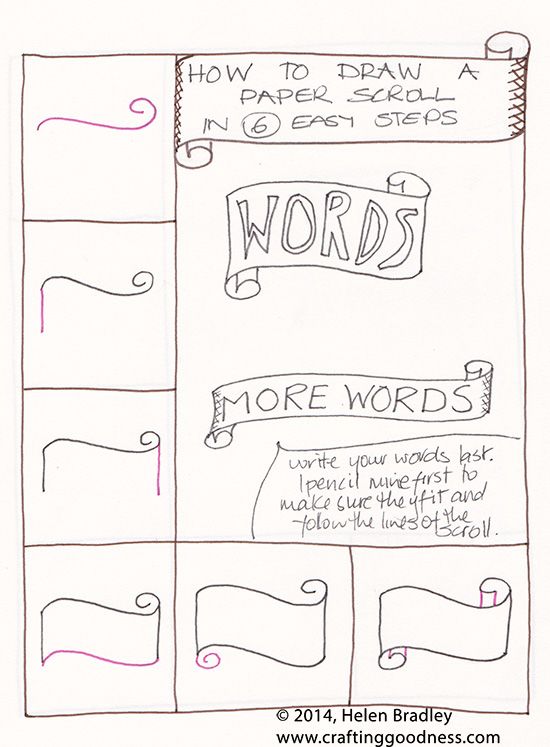 HOW TO DRAW A
PAPER SCROLL
IN 6 EASY STEPS
WORDS
MORE WORDS
write your words last.
I pencil mine first to
make sure they fit and
follow the lines of the
scroll.
© 2014, Helen Bradley
www.craftinggoodness.com